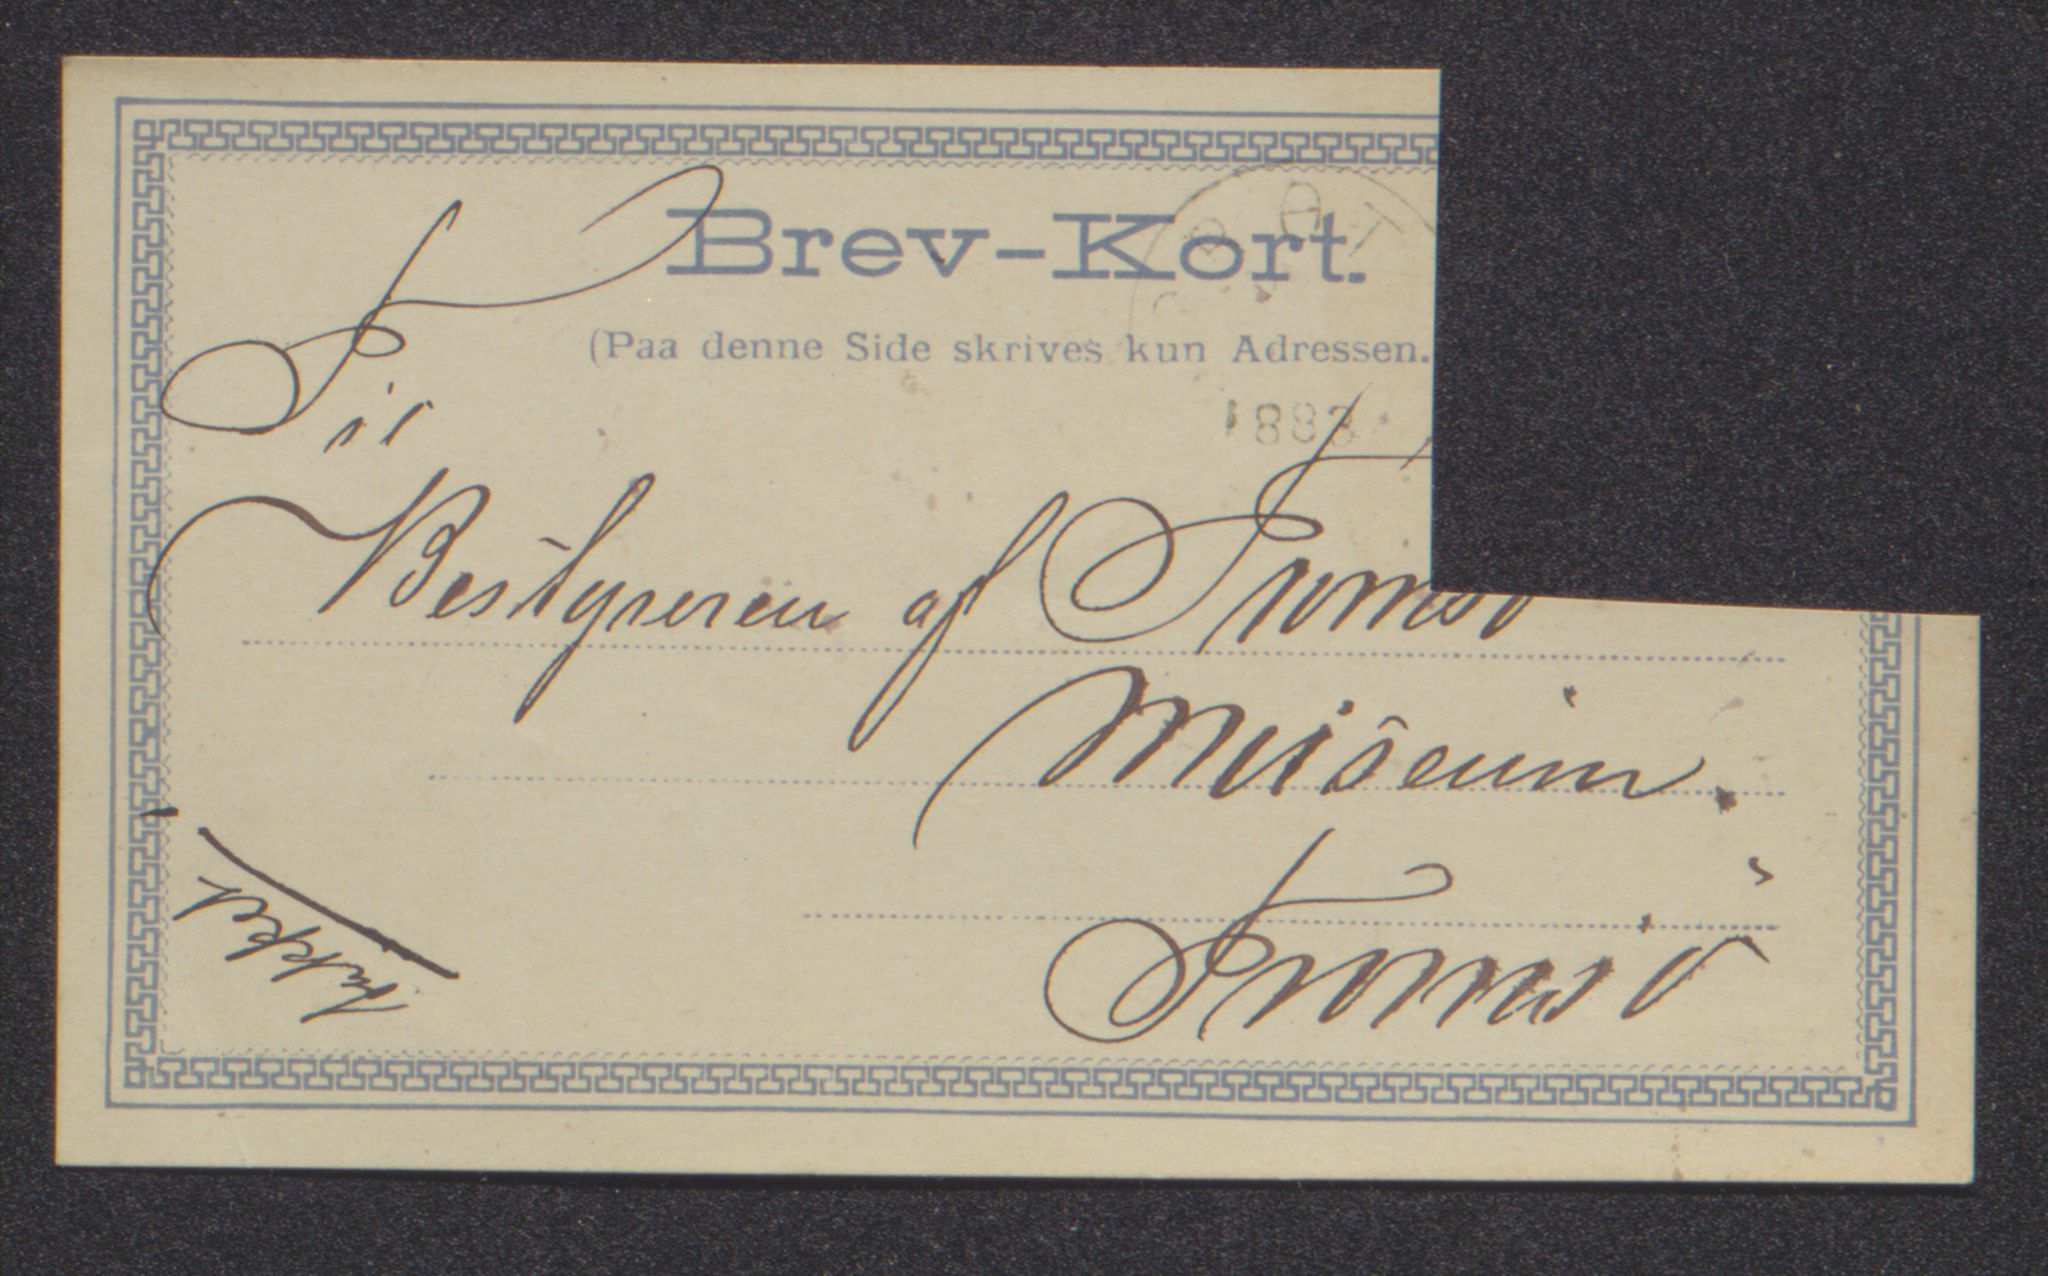 Brev-Kort.
(Paa denne Side skrives kun Adressen.
1883
Til
Bestyreren af Tromsø
Museum.
Tromsø